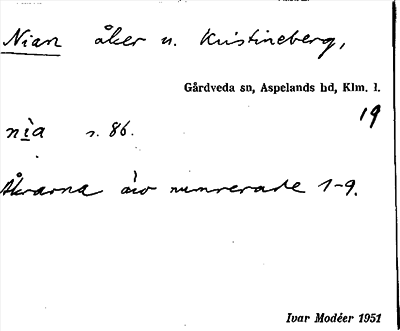 Nian åker u. Kristineberg,
Gårdveda sn, Aspelands hd, Klm. l.
19
nìa s. 86.
Åkrarna äro numrerade 1-9.
Ivar Modéer 1951